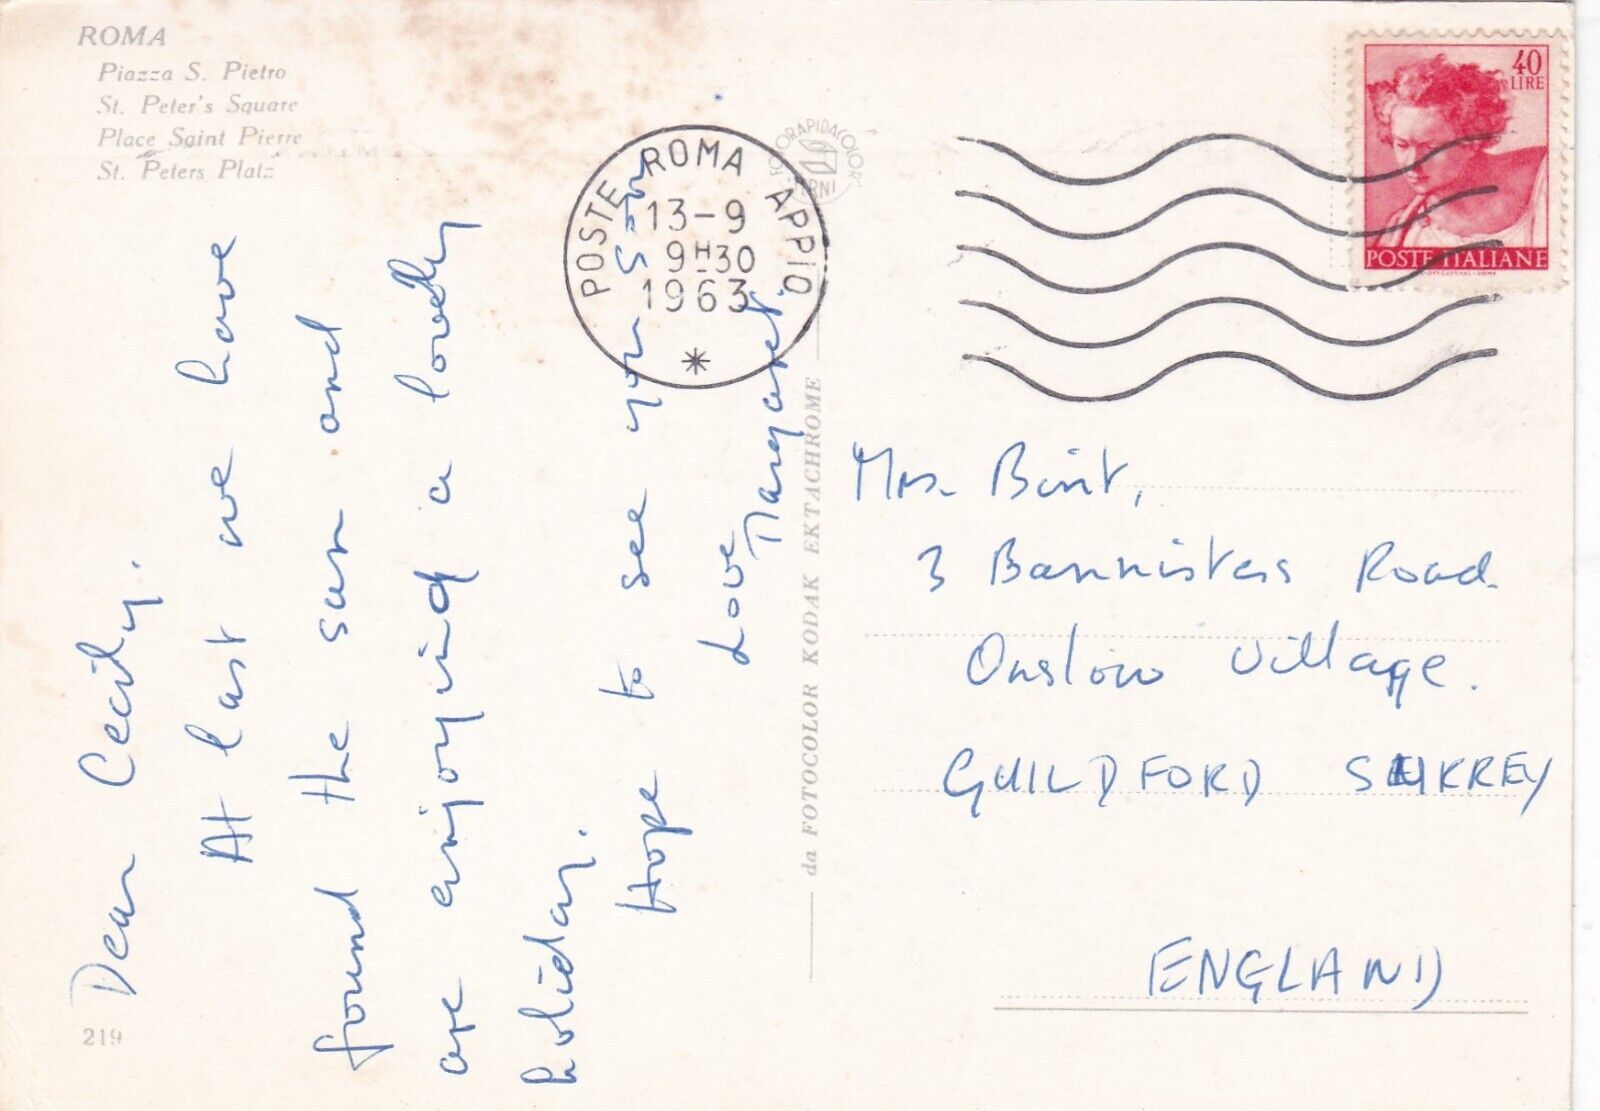 ROMA
Piazza S. Pietro
St. Peter's Square
Place Saint Pierre
St. Peters Platz
Dear Cecily.
At last we have
found the sun and
are enjoying a lovely
holiday.
Hope to see you soon
Love
Margaret.
219
POSTE ROMA APPIO
13-9
9H30
1963
da FOTOCOLOR KODAK EKTACHROME
40
LIRE
POSTE ITALIANE
Mrs. Bint,
3 Bannisters Road
Onslow Village.
GUILDFORD SURREY
ENGLAND